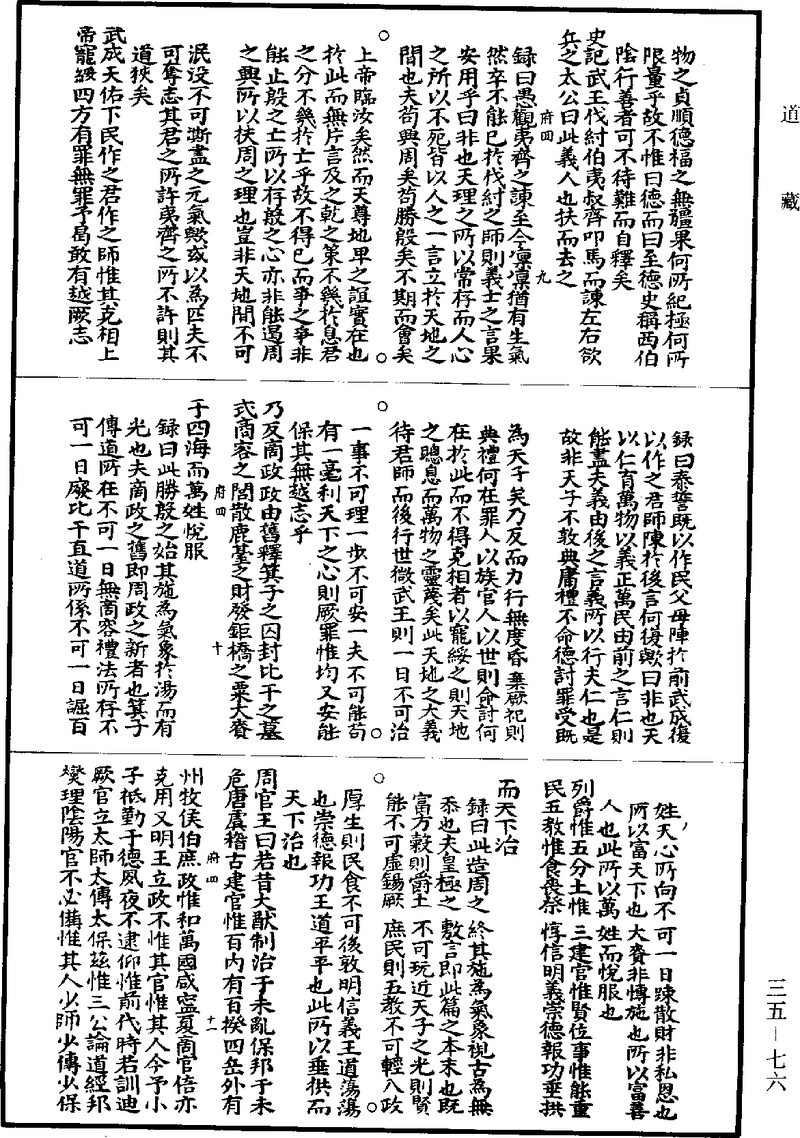 道藏
三五—七六
物之貞順德福之無疆果何所紀極何所
限量乎故不惟曰德而曰至德史稱西伯
陰行善者可不待難而自釋矣
史記武王伐紂伯夷叔齊叩馬而諫左右欲
兵之太公曰此義人也扶而去之
府四
九
錄曰愚觀夷齊之諫至今凛凛猶有生氣
然卒不能已於伐紂之師則義士之言果
安用乎曰非也天理之所以常存而人心
之所以不死皆以人之一言立於天地之
間也夫苟興周矣苟勝殷矣不期而會矣
上帝臨汝矣然而天尊地卑之誼實在也
於此而無片言及之乾之策不幾於息君
之分不幾於亡乎故不得已而爭之爭非
能止殷之亡所以存殷之心亦非能遏周
之興所以扶周之理也豈非天地間不可
泯没不可澌盡之元氣歟或以為匹夫不
可奪志其君之所許夷齊之所不許則其
道狹矣
武成天佑下民作之君作之師惟其克相上
帝寵綏四方有罪無罪予曷敢有越厥志
錄曰泰誓既以作民父母陣於前武成復
以作之君師陳於後言何復歟曰非也天
以仁育萬物以義正萬民由前之言仁則
能盡夫義由後之言義所以行夫仁也是
故非天子不敦典庸禮不命德討罪受既
為天子矣乃反而力行無度昏棄厥祀則
典禮何在罪人以族官人以世則命討何
在於此而不得克相者以寵綏之則天地
之聰息而萬物之靈蔑矣此天地之大義
待君師而後行世微武王則一日不可治
一事不可理一步不可安一夫不可能苟
有一毫利天下之心則厥罪惟均又安能
保其無越志乎
乃反商政政由舊釋箕子之囚封比干之墓
式商容之閭散鹿臺之財發鉅橋之粟大賚
府四
十
于四海而萬姓悅服
錄曰此勝殷之始其施為氣象於湯而有
光也夫商政之舊即周政之新者也箕子
傳道所在不可一日無商容禮法所存不
可一日廢比干直道所係不可一日誣百
姓天心所向不可一日踈散財非私恩也
所以富天下也大賚非慱施也所以富善
人也此所以萬姓而悅服也
列爵惟五分土惟三建官惟賢位事惟能重
民五教惟食喪祭惇信明義崇德報功垂拱
而天下治
錄曰此造周之終其施為氣象視古為無
忝也夫皇極之敷言即此篇之本末也既
富方穀則爵土不可玩近天子之光則賢
能不可虛錫厥庶民則五教不可輕八政
厚生則民食不可後敦明信義王道蕩蕩
也崇德報功王道平平也此所以垂拱而
天下治也
周官王曰若昔大猷制治于未亂保邦于未
危唐虞稽古建官惟百内有百揆四岳外有
府四
十一
州牧侯伯庶政惟和萬國咸寧夏商官倍亦
克用乂明王立政不惟其官惟其人今予小
子祗勤于德夙夜不逮仰惟前代時若訓迪
厥官立太師太傅太保茲惟三公論道經邦
爕理陰陽官不必備惟其人少師少傅少保